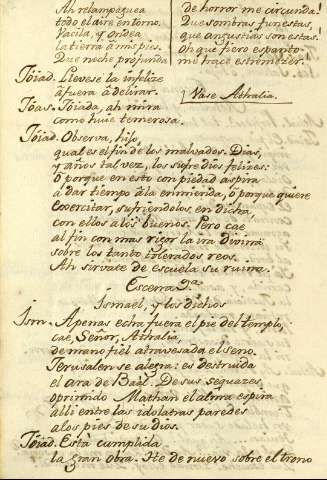 Ah relampaguea
todo el aire en torno.
Vacila, y ondea
la tierra à mis pies.
Que noche profunda
de horror me circunda!
Que sombras funestas,
que angustias son estas!
Oh que fiero espanto
me hace estremezer.
Joiad. Llevese la infelize
à fuera à delirar.
Vase Athalia.
Joas. Joiada, ah mira
como huie temerosa.
Joiad. Observa, hijo,
qual es el fin de los malvados. Dias,
y años tal vez, los sufre dios felizes:
ò porque en esto con piedad aspira
à dar tiempo àla enmienda, ò porque quiere
exercitar, sufriendolos en dicha,
con ellos àlos buenos. Pero cae
al fin con mas rigor la ira divina
sobre los tanto tolerados reos.
Ah sirvate de escuela su ruina.
Escena 9.ª
Ismael, y los dichos
Ism. Apenas echa fuera el pie del templo,
cae, Señor, Athalia,
de mano fiel atravesada el seno.
Jerusalen se alegra: es destruida
el ara de Baàl. De sus sequazes
oprimido Mathan el alma espira
alli entre las idolatras paredes
alos pies de su dios.
Joiad. Està cumplida
la gran obra. He de nuevo sobre el trono